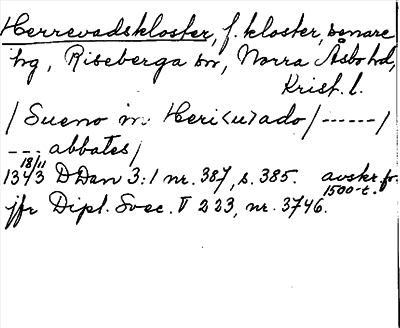 Herrevadskloster, f. kloster, senare
hg, Riseberga sn, Norra Åsbo hd,
Krist. l.
/ Sueno in Heri<u>ado / ------ /
--- abbates /
18/11
1343 DDan 3:1 nr. 387, s. 385. avskr. fr.
1500-t.
jfr Dipl. Svec. V 223, nr. 3746.